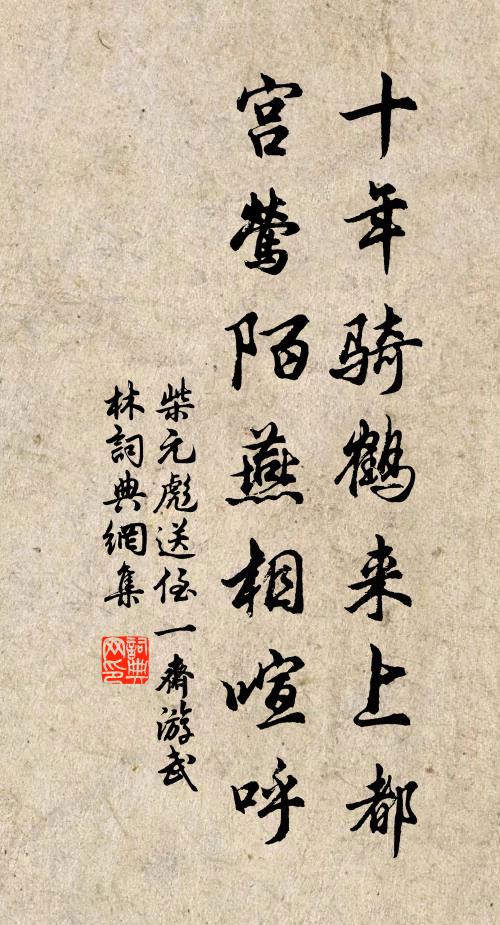 十年骑鹤来上都
宫莺陌燕相喧呼
柴元彪送侄一斋游武
林詞典網集
詞典
网印